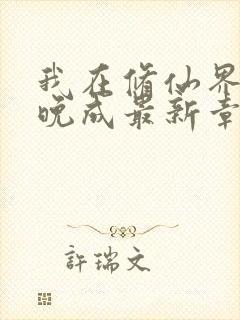 我在修仙界
晚成最新章
許瑞文